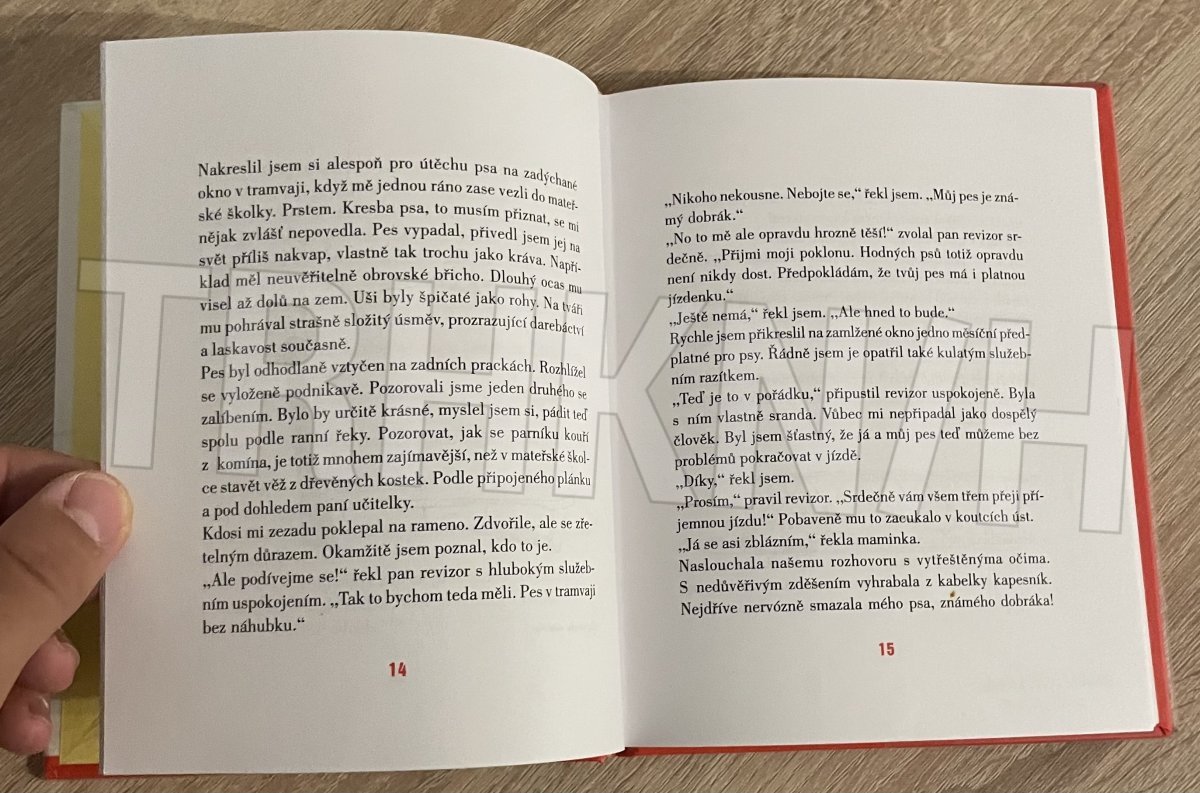 Nakreslil jsem si alespoň pro útěchu psa na zadýchané
okno v tramvaji, když mě jednou ráno zase vezli do mateř-
ské školky. Prstem. Kresba psa, to musím přiznat, se mi
nějak zvlášť nepovedla. Pes vypadal, přivedl jsem jej na
svět příliš nakvap, vlastně tak trochu jako kráva. Napří-
klad měl neuvěřitelně obrovské břicho. Dlouhý ocas mu
visel až dolů na zem. Uši byly špičaté jako rohy. Na tváři
mu pohrával strašně složitý úsměv, prozrazující darebáctví
a laskavost současně.
Pes byl odhodlaně vztyčen na zadních prackách. Rozhlížel
se vyloženě podnikavě. Pozorovali jsme jeden druhého se
zalíbením. Bylo by určitě krásné, myslel jsem si, pádit teď
spolu podle ranní řeky. Pozorovat, jak se parníku kouří
z komína, je totiž mnohem zajímavější, než v mateřské škol-
ce stavět věž z dřevěných kostek. Podle připojeného plánku
a pod dohledem paní učitelky.
Kdosi mi zezadu poklepal na rameno. Zdvořile, ale se zře-
telným důrazem. Okamžitě jsem poznal, kdo to je.
„Ale podívejme se!“ řekl pan revizor s hlubokým služeb-
ním uspokojením. „Tak to bychom teda měli. Pes v tramvaji
bez náhubku.“
14
„Nikoho nekousne. Nebojte se,“ řekl jsem. „Můj pes je zná-
mý dobrák.“
„No to mě ale opravdu hrozně těší!“ zvolal pan revizor sr-
dečně. „Přijmi moji poklonu. Hodných psů totiž opravdu
není nikdy dost. Předpokládám, že tvůj pes má i platnou
jízdenku.“
„Ještě nemá,“ řekl jsem. „Ale hned to bude.“
Rychle jsem přikreslil na zamlžené okno jedno měsíční před-
platné pro psy. Řádně jsem je opatřil také kulatým služeb-
ním razítkem.
„Teď je to v pořádku,“ připustil revizor uspokojeně. Byla
s ním vlastně sranda. Vůbec mi nepřipadal jako dospělý
člověk. Byl jsem šťastný, že já a můj pes teď můžeme bez
problémů pokračovat v jízdě.
„Díky,“ řekl jsem.
„Prosím,“ pravil revizor. „Srdečně vám všem třem přeji pří-
jemnou jízdu!“ Pobaveně mu to zacukalo v koutcích úst.
„Já se asi zblázním,“ řekla maminka.
Naslouchala našemu rozhovoru s vytřeštěnýma očima.
S nedůvěřivým zděšením vyhrabala z kabelky kapesník.
Nejdříve nervózně smazala mého psa, známého dobráka!
15
TRHKNIH